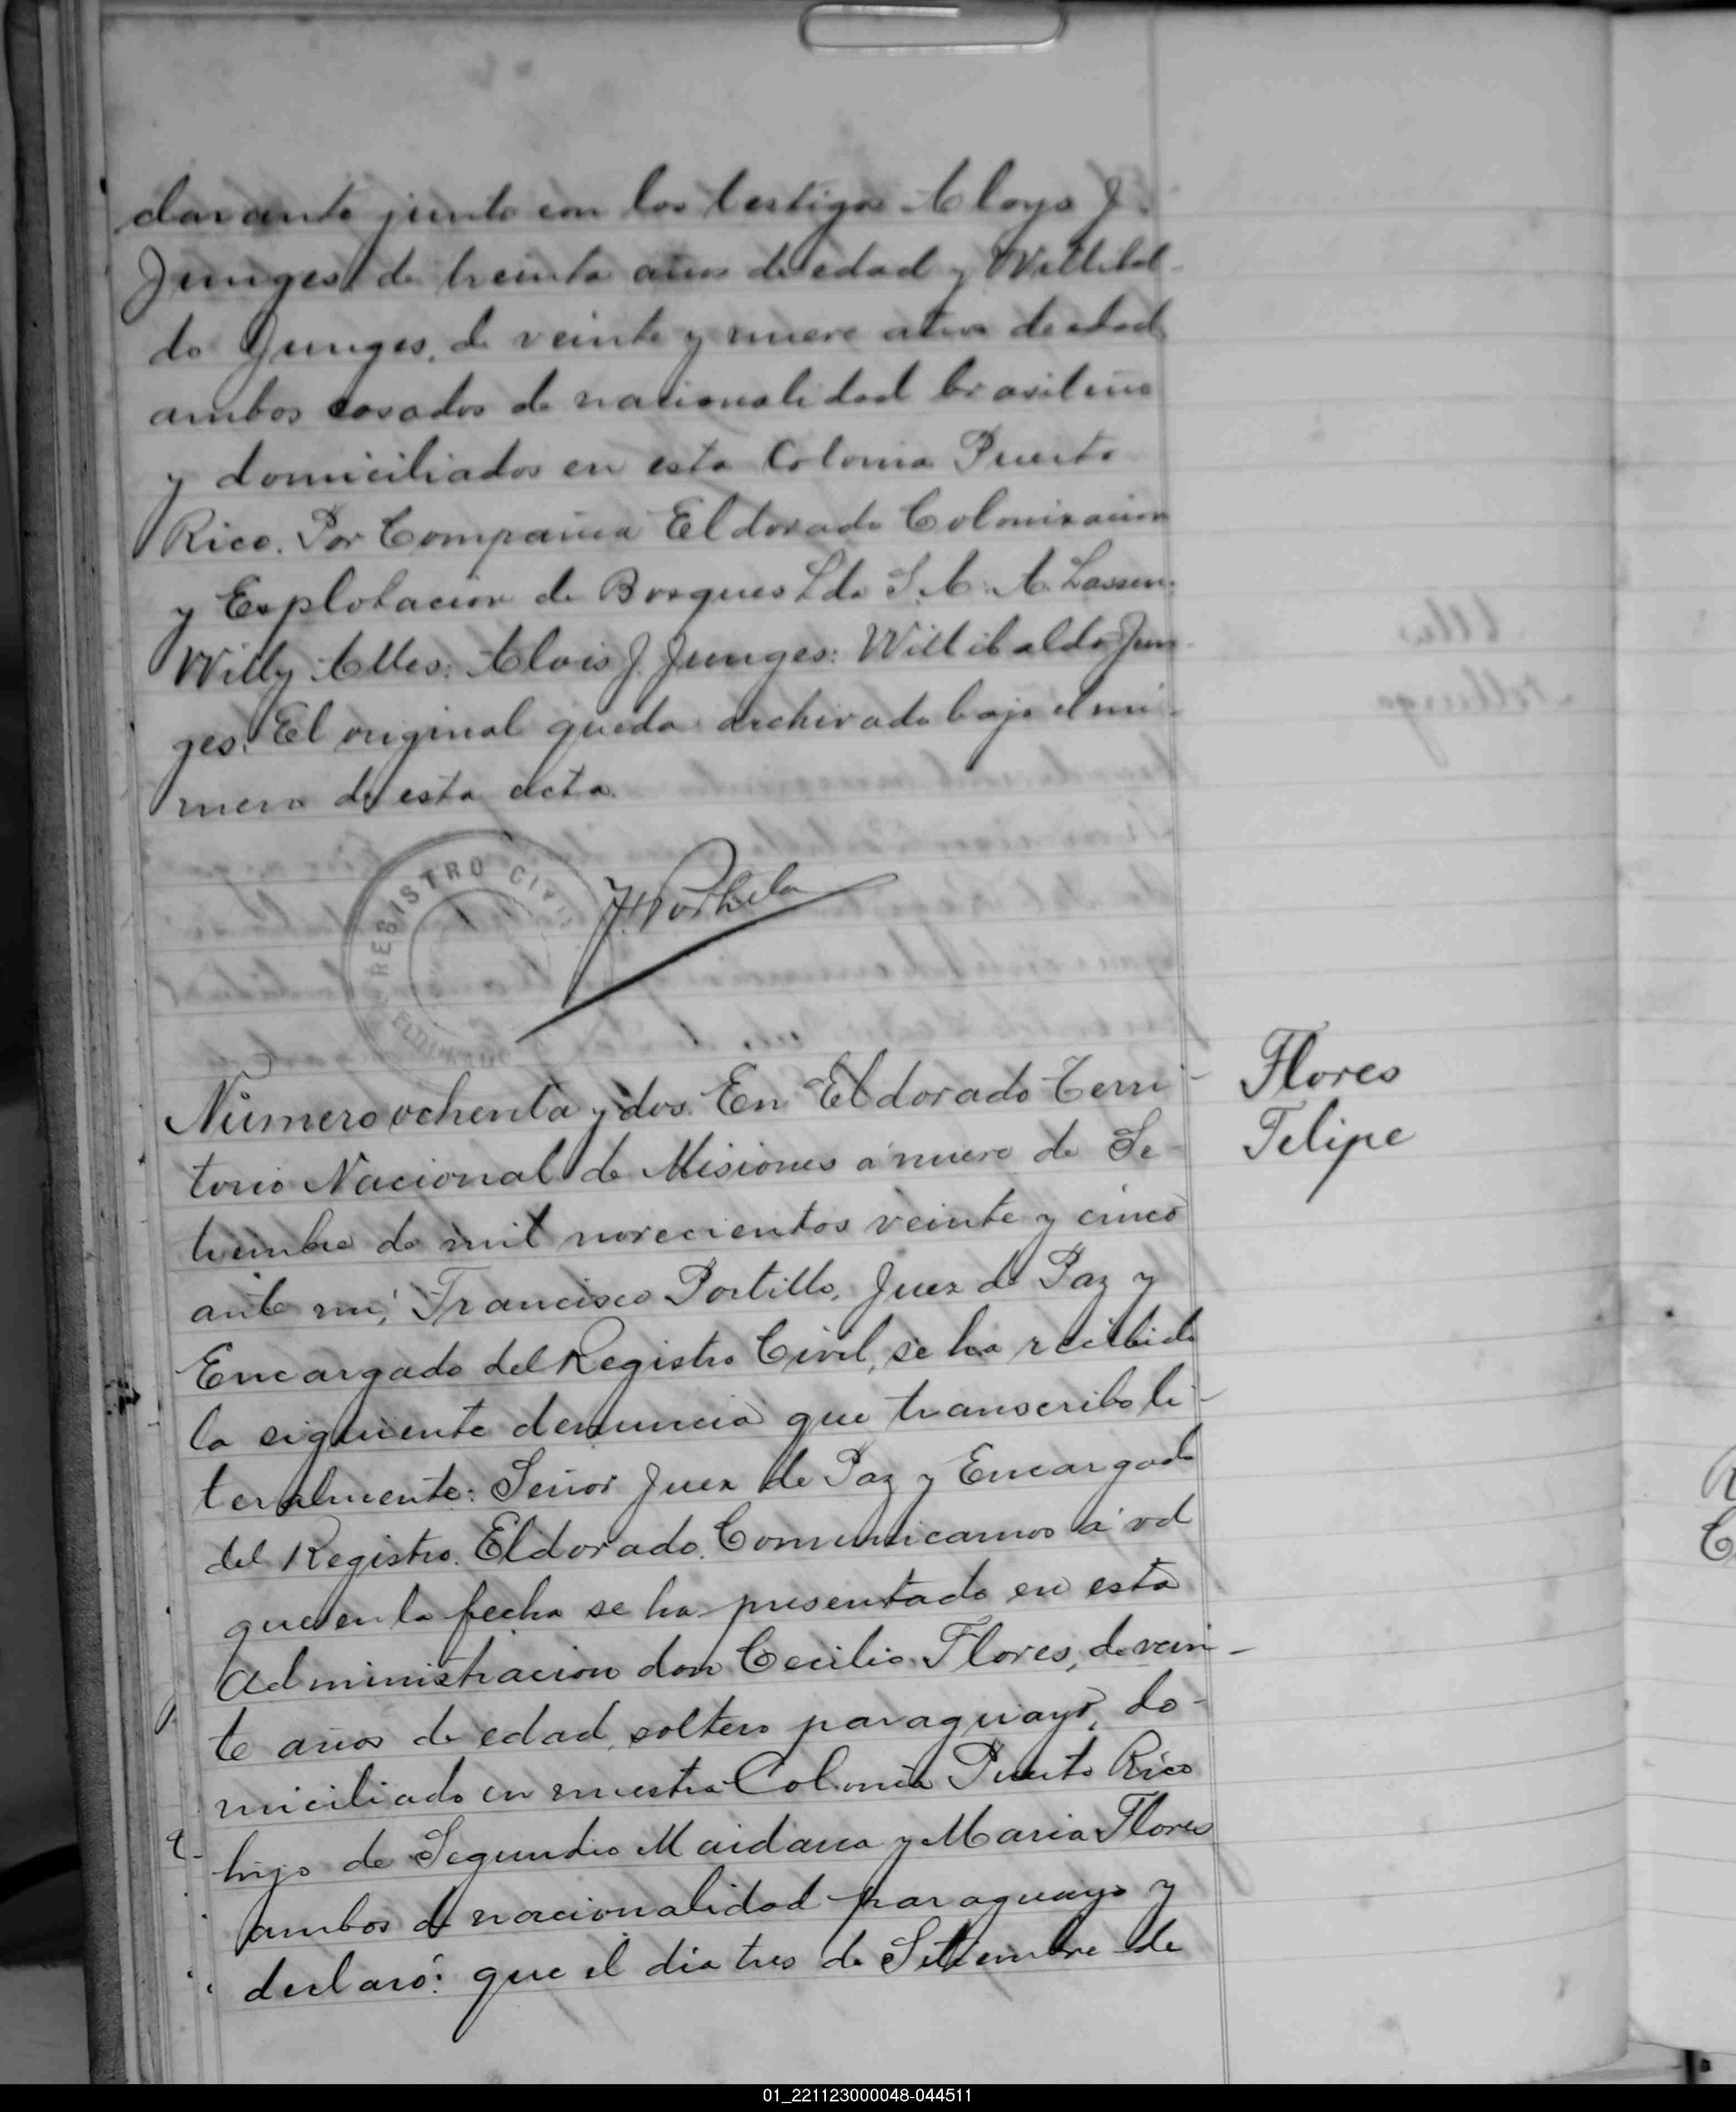 clarante junto con los testigos Aloys J.
Junges, de treinta años de edad y Willibal-
do Junges, de veinte y nueve años de edad
ambos casados de nacionalidad brasileña
y domiciliados en esta Colonia Puerto
Rico. Por Compañia Eldorado Colonizacion
y Explotacion de Bosques Lda S. A. A. Lassen.
Willy Alles: Alois J. Junges: Willibaldo Jun-
ges. El original queda archivado bajo el nú-
mero de esta acta.
REGISTRO CIVIL
ELDORADO
Número ochenta y dos. En Eldorado Terri-
torio Nacional de Misiones á nueve de Se-
tiembre de mil novecientos veinte y cinco
ante mi, Francisco Portillo, Juez de Paz y
Encargado del Registro Civil, se ha recibido
la siguiente denuncia que transcribo li-
teralmente: Señor Juez de Paz y Encargado
del Registro. Eldorado. Comunicamos á vd
que en la fecha se ha presentado en esta
Administracion don Cecilio Flores, de vein-
te años de edad, soltero paraguayo, do-
miciliado en nuestra Colonia Puerto Rico
hijo de Segundo Maidana y Maria Flores
ambos de nacionalidad paraguaya y
declaró: que el dia tres de Setiembre de
Flores
Felipe
01_221123000048-044511